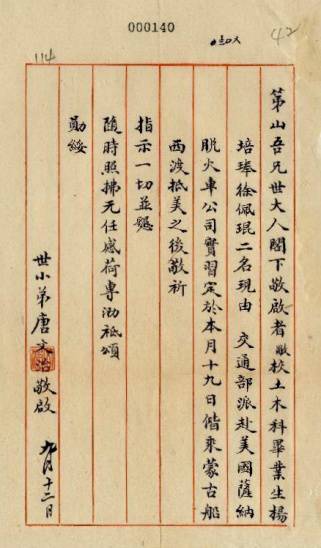 000140
42
114
第山吾兄世大人閣下敬啟者敝校土木科畢業生楊
培琫徐佩琨二名現由 交通部派赴美國薩納
脫火車公司實習定於本月十九日偕乘蒙古船
西渡抵美之後敬祈
指示一切並懇
隨時照拂无任感荷專泐祗頌
勛綏
世小弟唐文治敬啟 九月十二日